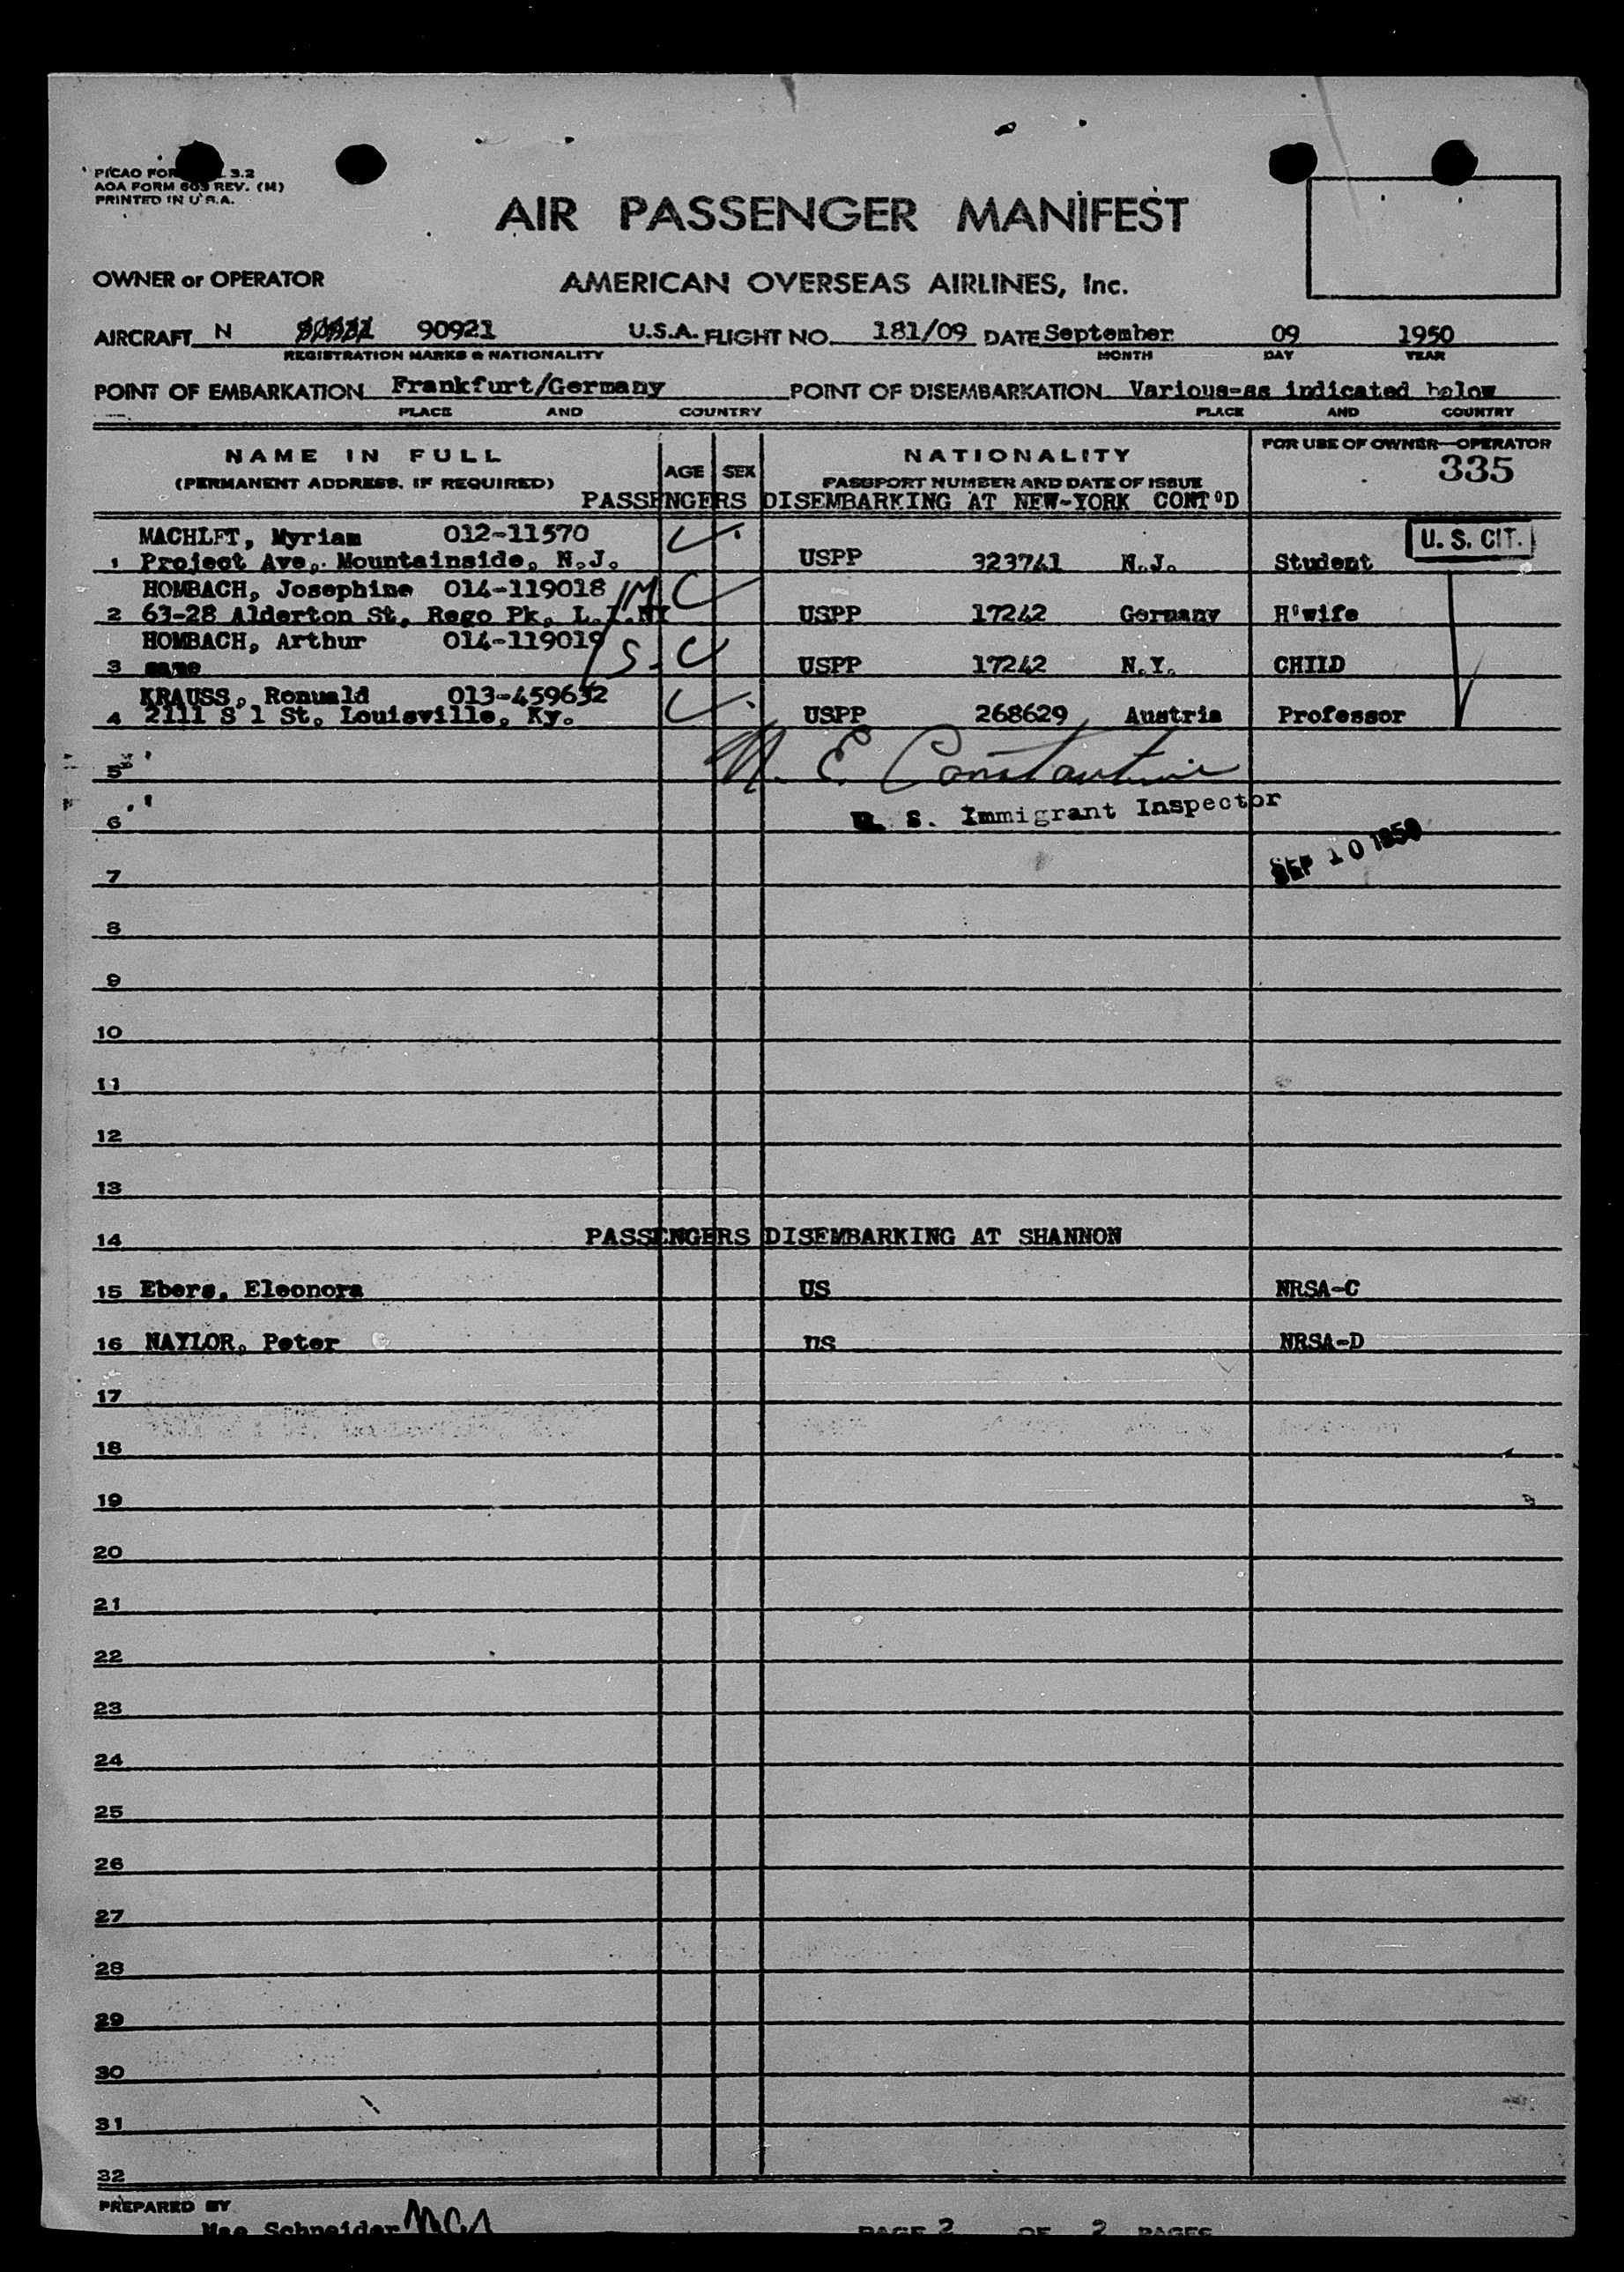 PICAO FOR 3.2
AOA FORM 603 REV. (M)
PRINTED IN U.S.A.
AIR PASSENGER MANIFEST
OWNER or OPERATOR AMERICAN OVERSEAS AIRLINES, Inc.
AIRCRAFT N 90921 U.S.A. FLIGHT NO. 181/09 DATE September 09 1950
REGISTRATION MARKS & NATIONALITY MONTH DAY YEAR
POINT OF EMBARKATION Frankfurt/Germany POINT OF DISEMBARKATION Various-as indicated below
PLACE AND COUNTRY PLACE AND COUNTRY
NAME IN FULL AGE SEX NATIONALITY FOR USE OF OWNER-OPERATOR
335
(PERMANENT ADDRESS, IF REQUIRED) PASSPORT NUMBER AND DATE OF ISSUE
PASSENGERS DISEMBARKING AT NEW-YORK CONT'D
MACHLET, Myriam 012-11570 U. S. CIT.
1 Project Ave, Mountainside, N.J. USPP 323741 N.J. Student
HOMBACH, Josephine 014-119018 M
2 63-28 Alderton St, Rego Pk, L.I.NY USPP 17242 Germany H'wife
HOMBACH, Arthur 014-119019 S.
3 same USPP 17242 N.Y. CHILD
KRAUSS, Romuald 013-459632
4 2111 S 1 St, Louisville, Ky. USPP 268629 Austria Professor
5 M. E. Constantine
6 U. S. Immigrant Inspector
SEP 10 1950
7
8
9
10
11
12
13
14 PASSENGERS DISEMBARKING AT SHANNON
15 Ebers, Eleonora US NRSA-C
16 NAYLOR, Peter US NRSA-D
17
18
19
20
21
22
23
24
25
26
27
28
29
30
31
32
PREPARED BY
Mae Schneider
PAGE 2 OF 2 PAGES